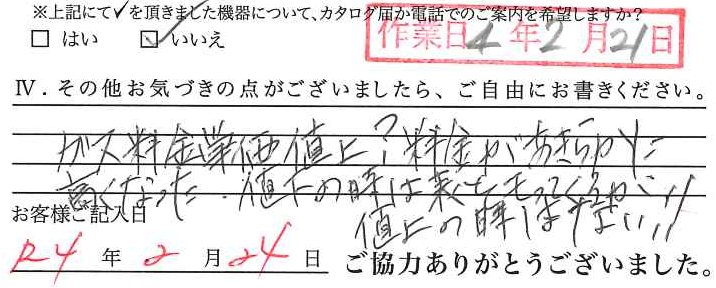 ※上記にて✓を頂きました機器について、カタログ届か電話でのご案内を希望しますか？
□ はい ☑ いいえ
作業日 4 年 2 月 21 日
Ⅳ．その他お気づきの点がございましたら、ご自由にお書きください。
ガス料金 値上？料金があきらかに
高くなった．値下の時は もってくるが
値上の時はすない!!
お客様ご記入日
R4 年 2 月 24 日 ご協力ありがとうございました。